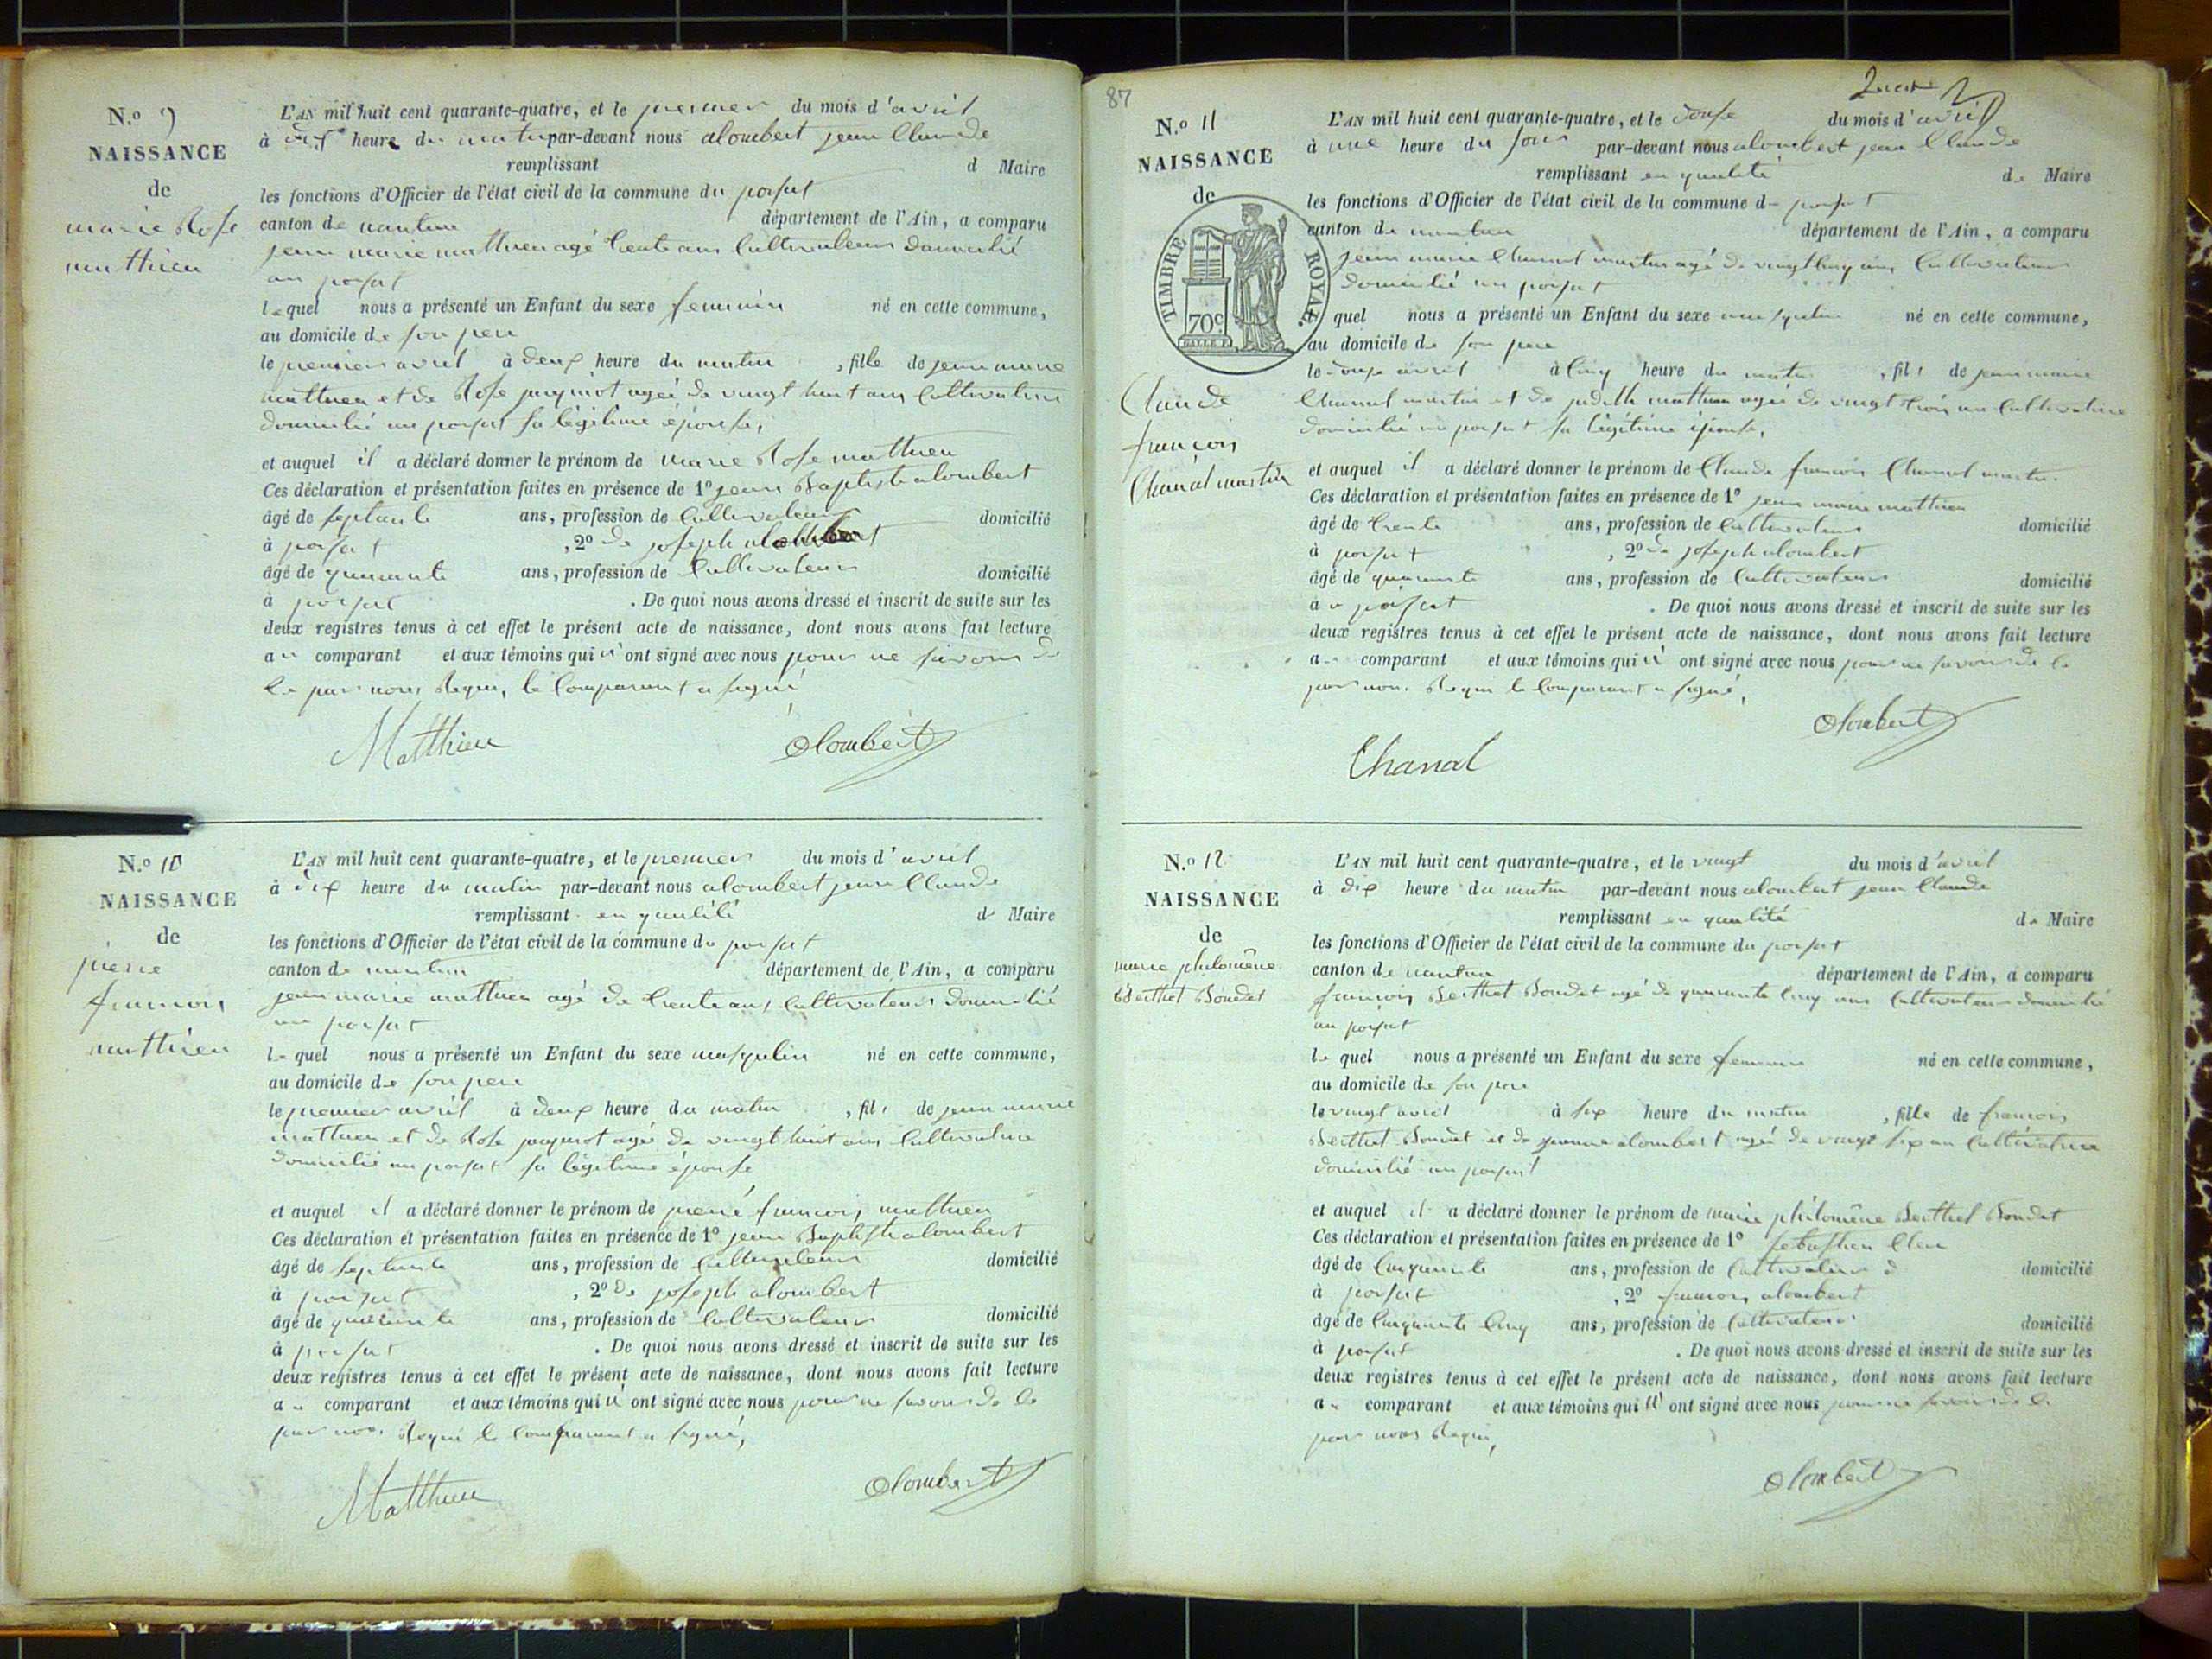 N.o 9
NAISSANCE
de
marie Rose
matthieu
L'AN mil huit cent quarante-quatre, et le premier du mois d'avril
à dix heure du matin par-devant nous alombert jean Claude
remplissant d Maire
les fonctions d'Officier de l'état civil de la commune du poisat
canton de nantua département de l'Ain, a comparu
jean marie matthieu agé trente ans Cultivateur domicilié
au poisat
lequel nous a présenté un Enfant du sexe feminin né en cette commune,
au domicile de son pere
le premier avril à deux heure du matin, fille de jean marie
matthieu et de Rose jacquiot agée de vingt huit ans Cultivatrice
domicilié au poisat sa légitime épouse,
et auquel il a déclaré donner le prénom de marie Rose matthieu
Ces déclaration et présentation faites en présence de 1º jean Baptiste alombert
âgé de septante ans, profession de Cultivateur domicilié
à poisat, 2º de joseph alombert
âgé de quarante ans, profession de Cultivateur domicilié
à poisat. De quoi nous avons dressé et inscrit de suite sur les
deux registres tenus à cet effet le présent acte de naissance, dont nous avons fait lecture
au comparant et aux témoins qui n'ont signé avec nous pour ne savoir de
ce par nous Requi, le Comparant a signé
Matthieu alombert
N.o 10
NAISSANCE
de
pierre
francois
matthieu
L'AN mil huit cent quarante-quatre, et le premier du mois d'avril
à dix heure du matin par-devant nous alombert jean Claude
remplissant en qualité de Maire
les fonctions d'Officier de l'état civil de la commune du poisat
canton de nantua département de l'Ain, a comparu
jean marie matthieu agé de trente ans Cultivateur domicilié
au poisat
le quel nous a présenté un Enfant du sexe masqulin né en cette commune,
au domicile de son pere
le premier avril à deux heure du matin, fils de jean marie
matthieu et de Rose jacquiot agée de vingt huit ans Cultivatrice
domicilié au poisat sa légitime épouse
et auquel il a déclaré donner le prénom de pierre francois matthieu
Ces déclaration et présentation faites en présence de 1º jean Baptiste alombert
âgé de septante ans, profession de Cultivateur domicilié
à poisat, 2º de joseph alombert
âgé de quarante ans, profession de Cultivateur domicilié
à poisat. De quoi nous avons dressé et inscrit de suite sur les
deux registres tenus à cet effet le présent acte de naissance, dont nous avons fait lecture
au comparant et aux témoins qui n'ont signé avec nous pour ne savoir de ce
par nous Requi le Comparant a signé,
Matthieu alombert
87
N.o 11
NAISSANCE
de
TIMBRE ROYAL.
70c
Claude
françois
Chanal martin
L'AN mil huit cent quarante-quatre, et le douse du mois d'avril
à une heure du soir par-devant nous alombert jean Claude
remplissant en qualité de Maire
les fonctions d'Officier de l'état civil de la commune d poisat
canton de nantua département de l'Ain, a comparu
jean marie Chanal martin agé de vingt Cinq ans Cultivateur
domicilié au poisat
quel nous a présenté un Enfant du sexe masqulin né en cette commune,
au domicile de son pere
le douse avril à Cinq heure du matin, fils de jean marie
Chanal martin et de judith matthieu agée de vingt trois ans Cultivatrice
domicilié au poisat sa légitime épouse,
et auquel il a déclaré donner le prénom de Claude francois Chanal martin
Ces déclaration et présentation faites en présence de 1º jean marie matthieu
âgé de trente ans, profession de Cultivateur domicilié
à poisat, 2º de joseph alombert
âgé de quarante ans, profession de Cultivateur domicilié
au poisat. De quoi nous avons dressé et inscrit de suite sur les
deux registres tenus à cet effet le présent acte de naissance, dont nous avons fait lecture
au comparant et aux témoins qui n'ont signé avec nous pour ne savoir de ce
par nous Requi le Comparant a signé,
alombert
Chanal
N.o 12
NAISSANCE
de
marie philomène
Berthet Bondet
L'AN mil huit cent quarante-quatre, et le vingt du mois d'avril
à dix heure du matin par-devant nous alombert jean Claude
remplissant en qualité de Maire
les fonctions d'Officier de l'état civil de la commune du poisat
canton de nantua département de l'Ain, a comparu
francois Berthet Bondet agé de quarante Cinq ans Cultivateur domicilié
au poisat
le quel nous a présenté un Enfant du sexe feminin né en cette commune,
au domicile de son pere
le vingt avril à six heure du matin, fille de francois
Berthet Bondet et de jeanne alombert agée de vingt six ans Cultivatrice
domicilié au poisat
et auquel il a déclaré donner le prénom de marie philomène Berthet Bondet
Ces déclaration et présentation faites en présence de 1º sebastien
âgé de Cinquante ans, profession de Cultivateur domicilié
à poisat, 2º francois alombert
âgé de Cinquante Cinq ans, profession de Cultivateur domicilié
à poisat. De quoi nous avons dressé et inscrit de suite sur les
deux registres tenus à cet effet le présent acte de naissance, dont nous avons fait lecture
au comparant et aux témoins qui n'ont signé avec nous pour ne savoir de ce
par nous Requi,
alombert